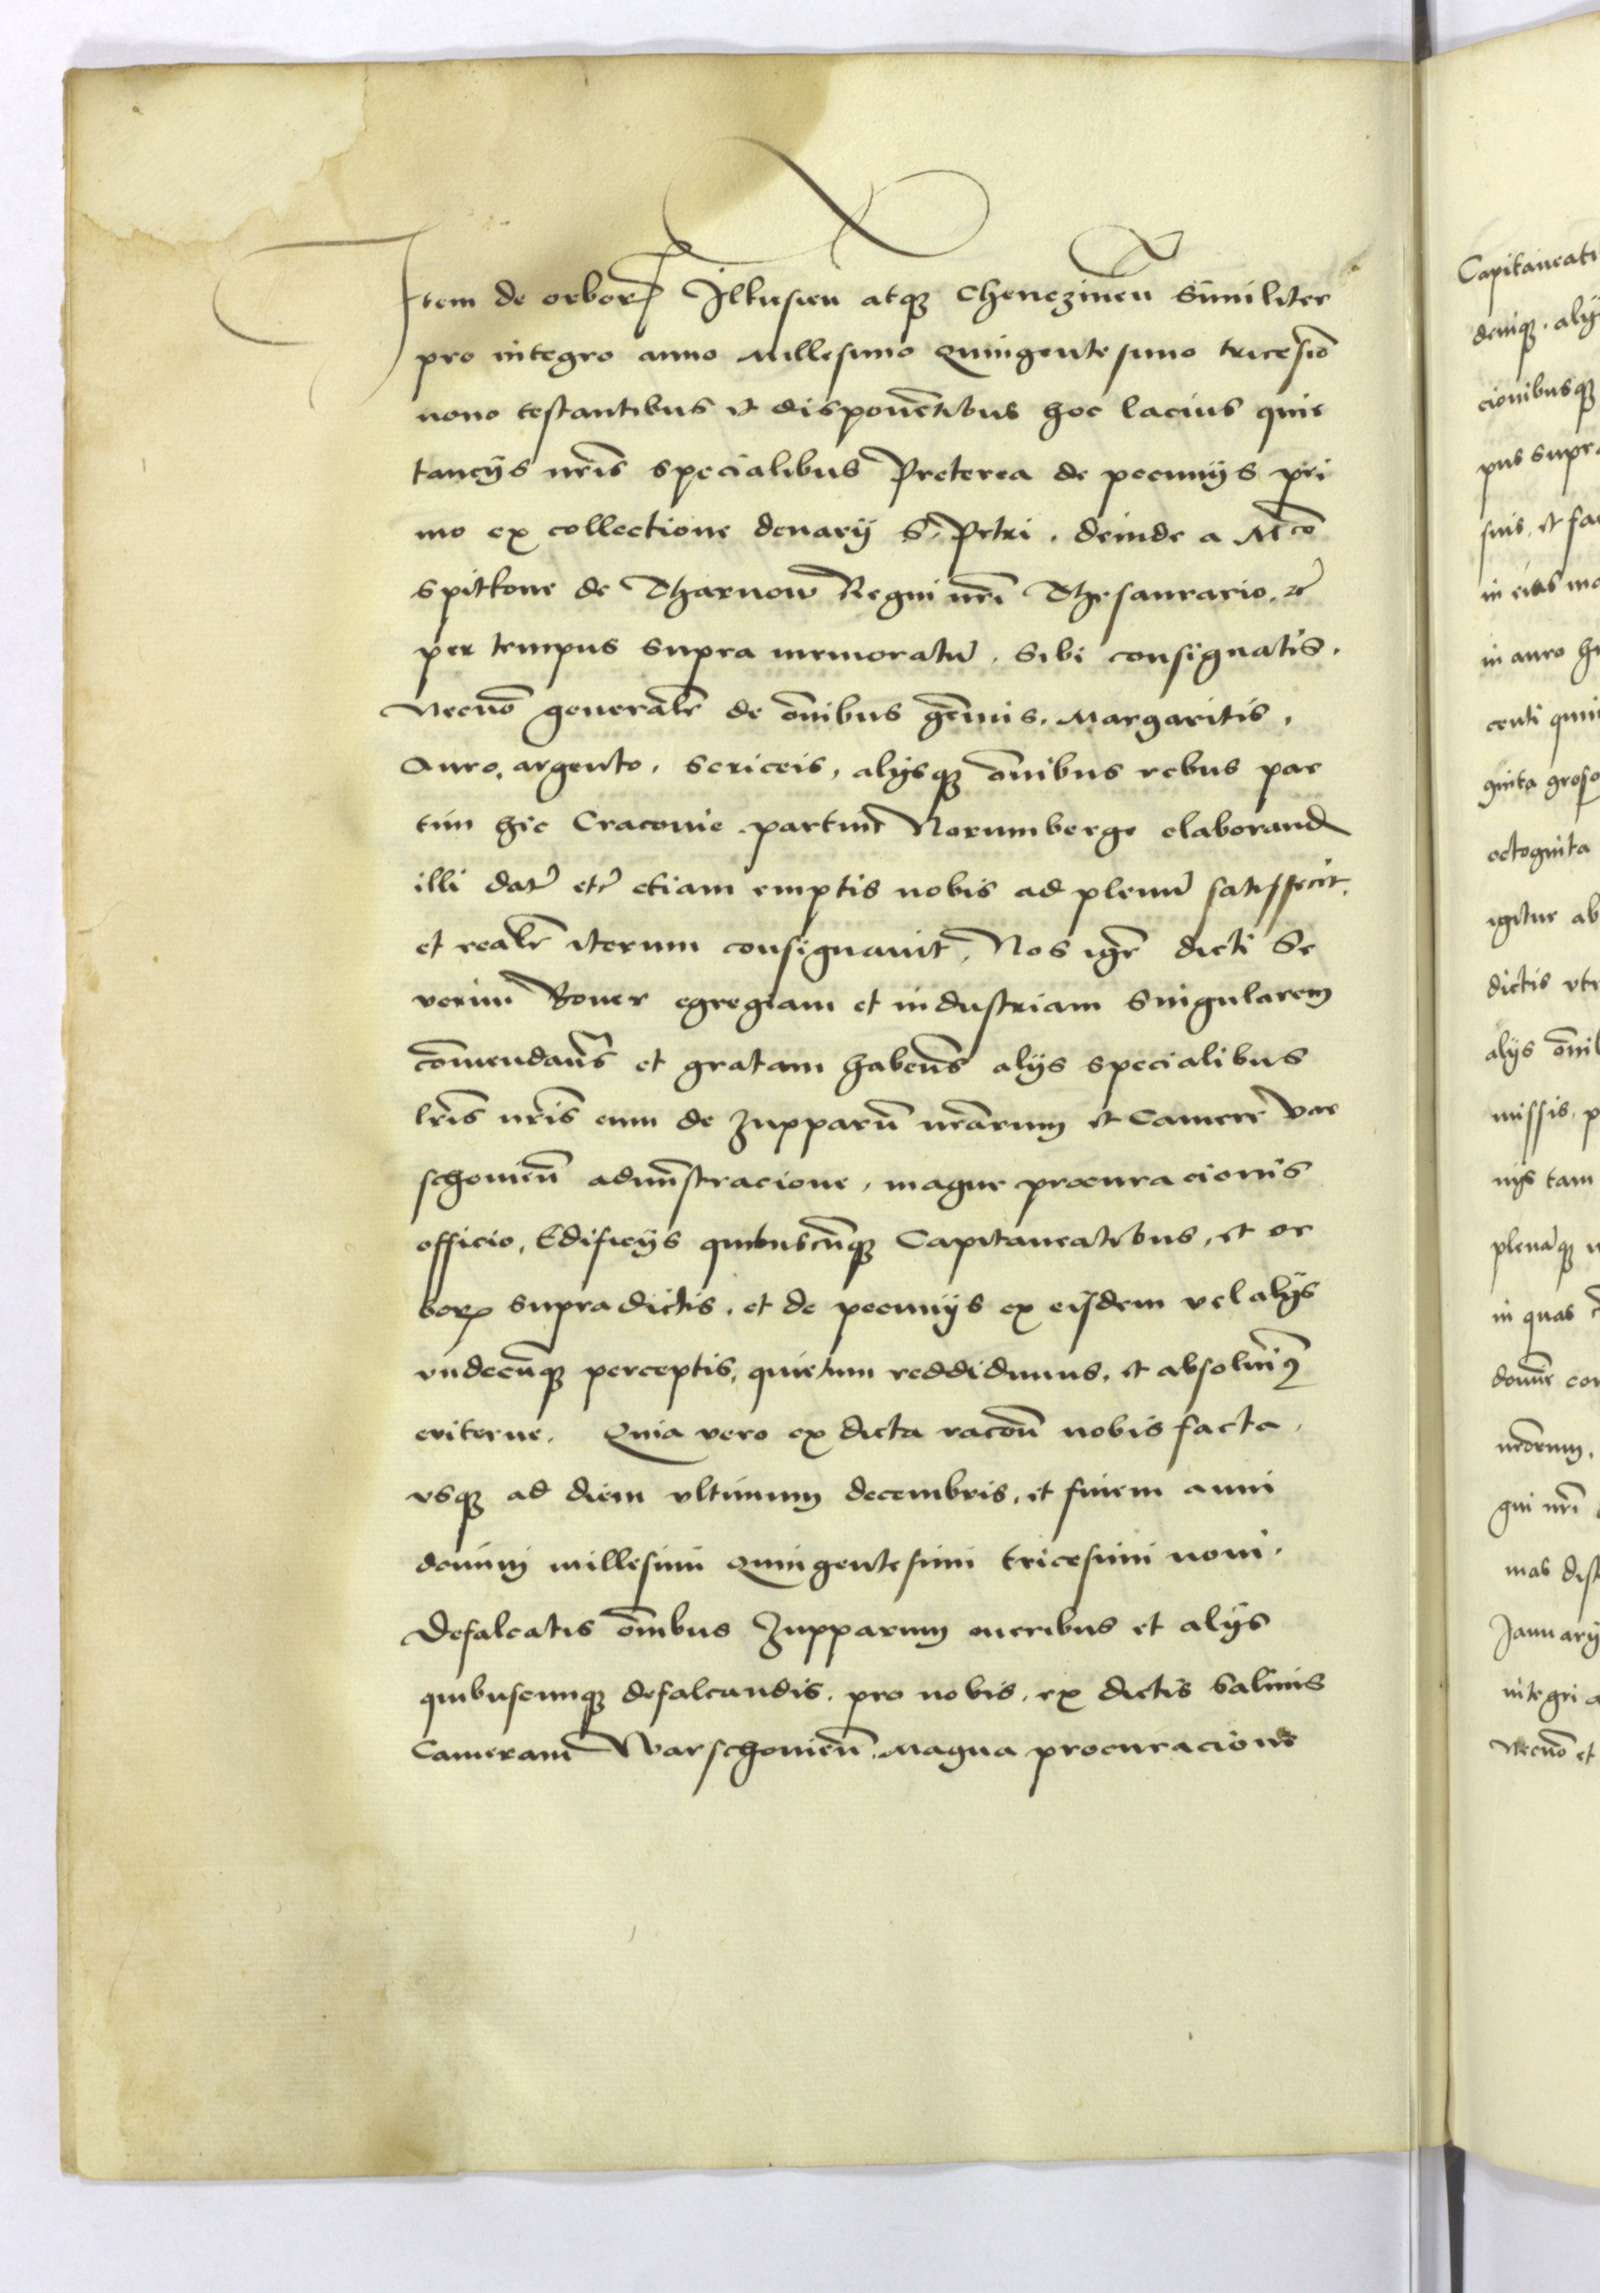 Item de orbor Ilkusien atque Chenczinen similiter
pro integro anno Millesimo Quingentesimo tricesio
nono testantibus et disponentibus hoc lacius quie
tancijs nris specialibus Preterea de pecunijs pri
mo ex collectione denarij S. Petri . deinde a Mco
Spitkone de Tharnow Regni nri Thesaurario, et
per tempus supra memoratu . sibi consignatis .
Necno generalr de oibus gemis . Margaritis ,
Auro, argento , sericeis , alijsque oibus rebus par
tim hic Cracovie partim Norumberge elaborand
illi dat etc etiam emptis nobis ad plenu satisfecit ,
et realr iterum consignavit , Nos igr dicti Se
verini Boner egregiam et industriam singularem
comendan et gratam haben alijs specialibus
lris nris eum de zupparu nrarum et Camere Var
schovien admistracione , magne procuracionis
officio, Edificijs quibuscunque Capitaneatibus , et or
bor supradictis . et de pecunijs ex eisdem vel alijs
undecunque perceptis , quietum reddidimus . et absolvimus
eviterne . Quia vero ex dicta racon nobis facta .
usque ad diem ultimum decembris , et finem anni
domini millesimi Quingentesimi tricesimi noni .
Defalcatis oibus Zupparum oneribus et alijs
quibuscunque defalcandis . pro nobis , ex dictis salinis
Cameram Warschovien . Magna procuracione
Capitaneati
denique . alij
cionibusque
pus supra
suis , et fac
in eius ma
in auro hu
centi quin
ginta grosso
octoginta
igitur ab
dictis utr
alijs onib
missis , p
nis tam
plenaque
in quas
domine con
nrorum .
gni nri
mas dist
Januarij
integri a
Necno et